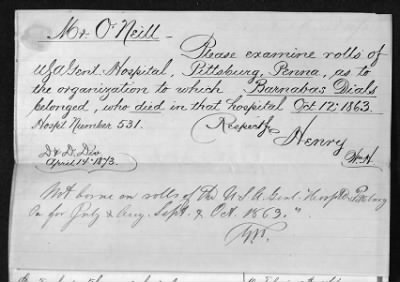 Mr. O'Neill -
Please examine rolls of
U.S.A. Gent. Hospital, Pittsburg, Penna, as to
the organization to which Barnabas Dials
belonged, who died in that hospital Oct 12. 1863.
Hospt Number 531. Respectfy
Henry
D & D. Div W.H.
April 14. 1873.
Not borne on rolls of the U S A. Genl. Hospital Pittsburg
Pa for July & Aug. Sept. & Oct. 1863."